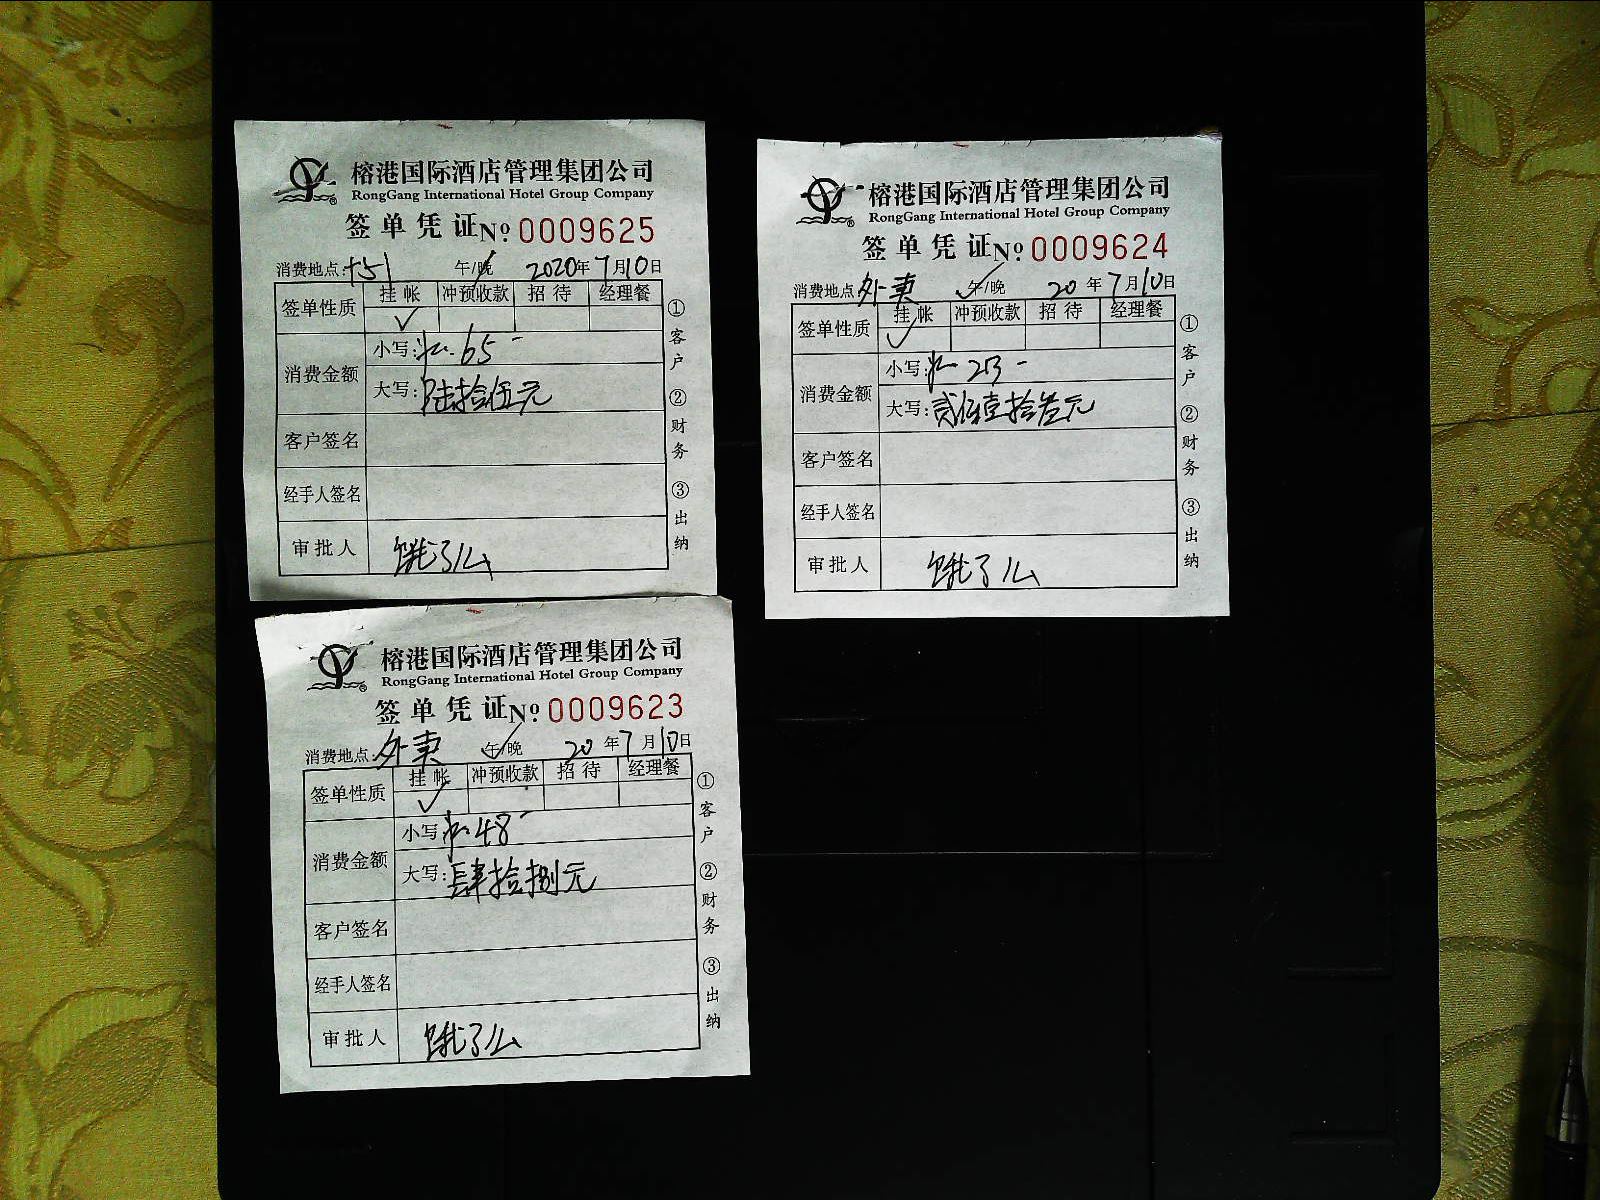 榕港国际酒店管理集团公司
RongGang International Hotel Group Company
签单凭证No. 0009625
消费地点: 午/晚 2020年7月10日
签单性质 挂帐 冲预收款 招待 经理餐
✓
消费金额
小写: 65-
大写: 陆拾伍元
客户签名
经手人签名
审批人 饿了么
①客户 ②财务 ③出纳
榕港国际酒店管理集团公司
RongGang International Hotel Group Company
签单凭证No. 0009624
消费地点: 外卖 午/晚 20年7月10日
签单性质 挂帐 冲预收款 招待 经理餐
✓
消费金额
小写: 213-
大写: 贰佰壹拾叁元
客户签名
经手人签名
审批人 饿了么
①客户 ②财务 ③出纳
榕港国际酒店管理集团公司
RongGang International Hotel Group Company
签单凭证No. 0009623
消费地点: 外卖 午/晚 20年7月10日
签单性质 挂帐 冲预收款 招待 经理餐
✓
消费金额
小写: 48-
大写: 肆拾捌元
客户签名
经手人签名
审批人 饿了么
①客户 ②财务 ③出纳